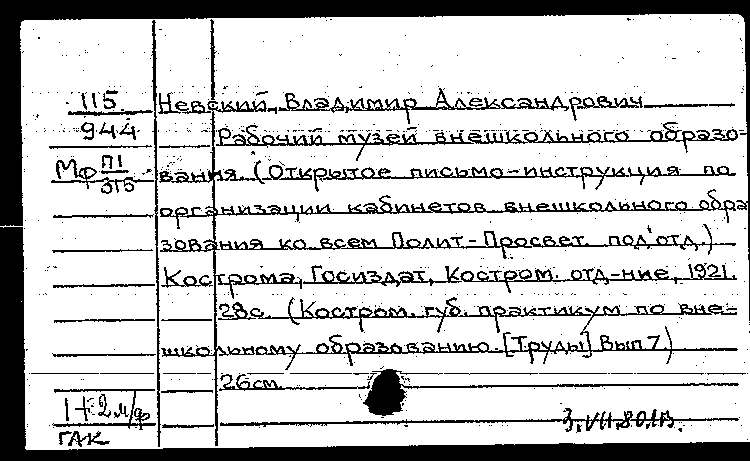 115 Невский, Владимир Александрович
944 Рабочий музей внешкольного образо-
Мф П1/315 вания. (Открытое письмо-инструкция по
организации кабинетов внешкольного обра
зования ко всем Полит-Просвет. под'отд.)
Кострома, Госиздат, Костром. отд-ние, 1921.
28с. (Костром. губ. практикум по вне-
школьному образованию. [Труды] Вып 7)
26см.
1+2м/ф
ГАК 3.VII.80.